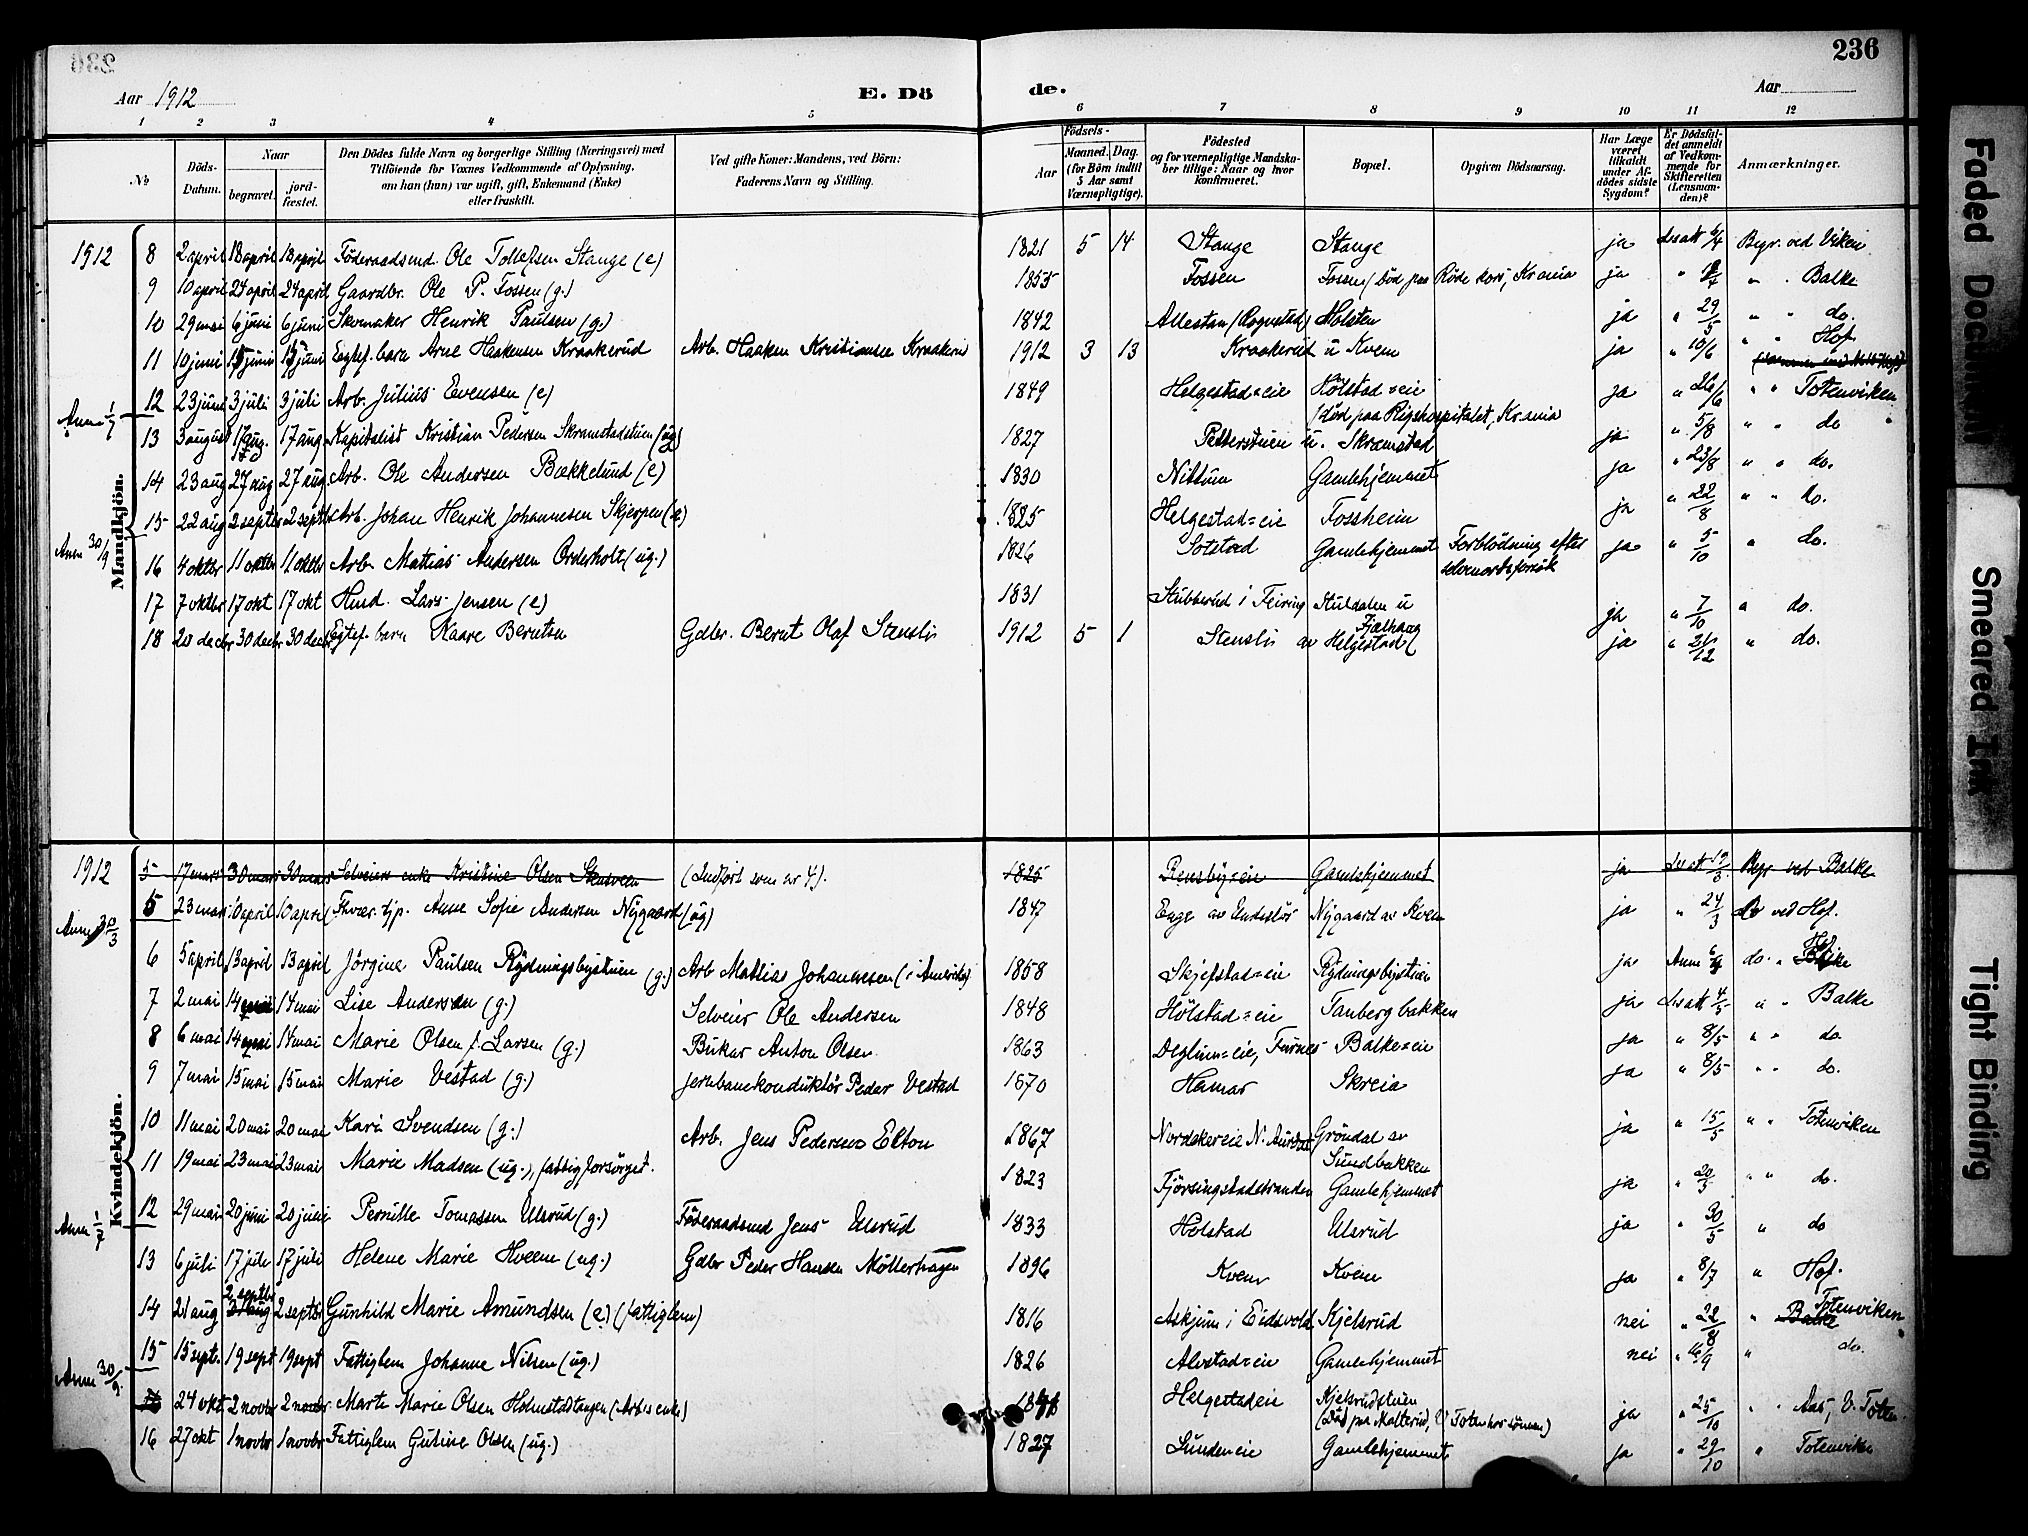 236
Aar 1912
E. Dö
de.
Aar
1 2 3 4 5 6 7 8 9 10 11 12
№
Döds-
Datum.
Naar
begravet.
jord-
fæstet.
Den Dödes fulde Navn og borgerlige Stilling (Næringsvei) med
Tilföiende for Voxnes Vedkommende af Oplysning,
om han (hun) var ugift, gift, Enkemand (Enke)
eller fraskilt.
Ved gifte Koner: Mandens, ved Börn:
Faderens Navn og Stilling.
Födsels-
Aar
Maaned. Dag.
(for Börn indtil
5 Aar samt
Værnepligtige).
Födested
og for værnepligtige Mandska-
ber tillige: Naar og hvor
konfirmeret.
Bopæl.
Opgiven Dödsaarsag.
Har Læge
været
tilkaldt
under Af-
dödes sidste
Sygdom?
Er Dödsfal-
det anmeldt
af Vedkom-
mende for
Skifteretten
(Lensman-
den)?
Anmærkninger.
Mandkjön.
1912 8 2 april 18 april 18 april Föderaadsmd. Ole Tollefsen Stange (e) 1821 5 14 Stange Stange ja Ls att 6/4 Begr. ved Viken
9 10 april 24 april 24 april Gaardbr. Ole P. Fossen (g.) 1855 Fossen Fossen (död paa Röde kors, Krania ja " " " Balke
10 29 mai 6 juni 6 juni Skomaker Henrik Paulsen (g.) 1842 Allestan (Rognstad) Holsten ja " 29/5 " " do.
11 10 juni 15 juni 15 juni Egtef. barn Arne Haakensen Kraakerud Arb. Haaken Kristiansen Kraakerud 1912 3 13 Kraakerud u Kvem ja " 10/6 " " Hof
12 23 juni 3 juli 3 juli Arb. Julius Evensen (e) 1849 Helgestad=eie Hölstad=eie ja " 26/6 " " Totenviken
(död paa Rigshospitalet, Krania
Anm 1/7
13 3 august 17 aug. 17 aug Kapitalist Kristian Pedersen Skramstadstuen (ug) 1827 Petterstuen u. Skramstad ja " 5/8 " " do
14 23 aug 27 aug 27 aug Arb. Ole Andersen Bækkelund (e) 1830 Nittum Gamlehjemmet ja " 23/8 " " do.
15 22 aug 2 septbr 2 septbr Arb. Johan Henrik Johannesen Skjerpen (e) 1825 Helgestad=eie Fossheim ja " 22/8 " " do.
Anm 30/9
16 4 oktbr 11 oktbr 11 oktbr Arb. Mattias Andersen Orderholt (ug.) 1826 Sotstad Gamlehjemmet Forblödning efter
selvmordsforsök ja " 5/10 " do.
17 7 oktbr 17 okt 17 okt Hmd. Lars Jensen (e) 1831 Stubberud i Feiring Stuldalen u
Fjælhaug ja " 7/10 " do.
18 20 decbr 30 decbr 30 decbr Egtef. barn Kaare Berntsen Gdbr. Bernt Olaf Stensli 1912 5 1 Stensli av Helgestad ja " 21/12 " do.
Kvindekjön.
1912 5 17 mars 30 mars 30 mars Selveiers enke Kristine Olsen Stensveen (Indfört som nr 4). 1825 Rensby=eie Gamlehjemmet ja Ls att 19/3 Begr. ved Balke
5 23 mars 10 april 10 april Fhvær. tjp. Anne Sofie Andersen Nygaard (ug) 1847 Enge av Endeslös Nygaard av Kvem ja " 24/3 do ved Hof.
Anm 30/3
6 5 april 13 april 13 april Jörgine Paulsen Rydningsbystuen (g.) Arb. Mattias Johannesen (i Amerika) 1858 Skjefstad=eie Rydningsbystuen ja Anm 6/4 do. " Hof
Balke
7 2 mai 14 mai 14 mai Lise Andersen (g.) Selveier Ole Andersen 1848 Hölstad=eie Tanbergbakken ja Ls att 4/5 " " Balke
8 6 mai 14 mai 14 mai Marie Olsen f. Larsen (g.) Anton Olsen 1863 Deglum=eie, Furnes Balke=eie ja " 8/5 " " do.
9 7 mai 15 mai 15 mai Marie Vestad (g.) Jernbanekonduktör Peder Vestad 1870 Hamar Skreia ja " 8/5 " " do.
10 11 mai 20 mai 20 mai Kari Svendsen (g.) Arb. Jens Pedersen Elton 1867 Nordskereie N. Aurdal Gröndal av
Sundbakken ja " 15/5 " " Totenviken
11 19 mai 23 mai 23 mai Marie Madsen (ug.), fattigforsörget. 1823 Fjörsingstadstranden Gamlehjemmet ja " 20/5 " " do.
12 29 mai 20 juni 20 juni Pernille Tomassen Ulsrud (g.) Föderaadsmd Jens Ulsrud 1833 Holstad Ulsrud ja " 30/5 " do
Anm 1/7
13 6 juli 17 juli 17 juli Helene Marie Hveem (ug.) Gdbr Peder Hansen Möllerhagen 1896 Kvem Kvem ja " 8/7 " Hof.
14 21 aug 2 septbr 2 septbr Gunhild Marie Amundsen (e) (fattiglem) 1816 Askjum i Eidsvold Kjelsrud nei " 22/8 " Totenviken
Balke
15 15 sept. 19 sept 19 sept Fattiglem Johanne Nilsen (ug.) 1826 Alvstad=eie Gamlehjemmet nei " 16/9 " do.
Anm 30/9.
24 okt 2 novbr 2 novbr Marte Marie Olsen Holmstadtangen (Arb.s enke) Helgestadeie Kjelsrudstuen
(Död paa Malterud, V Toten hos sönnen) ja " 25/10 " " Aas, V. Toten
16 27 okt 1 novbr 1 novbr Fattiglem Gutine Olsen (ug.) 1827 Lundeneie Gamlehjemmet ja " 29/10 " Totenviken
Faded Document
Smeared Ink
Tight Binding